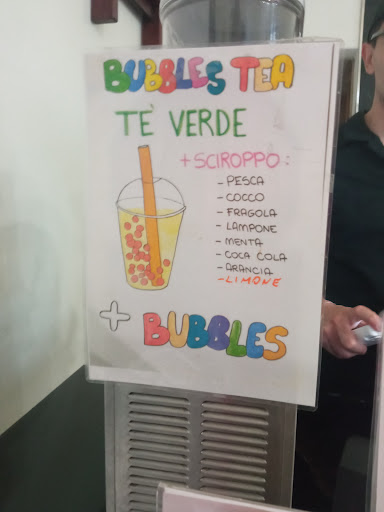 BUBBLES TEA
TE' VERDE
+ SCIROPPO:
- PESCA
- COCCO
- FRAGOLA
- LAMPONE
- MENTA
- COCA COLA
- ARANCIA
- LIMONE
+ BUBBLES